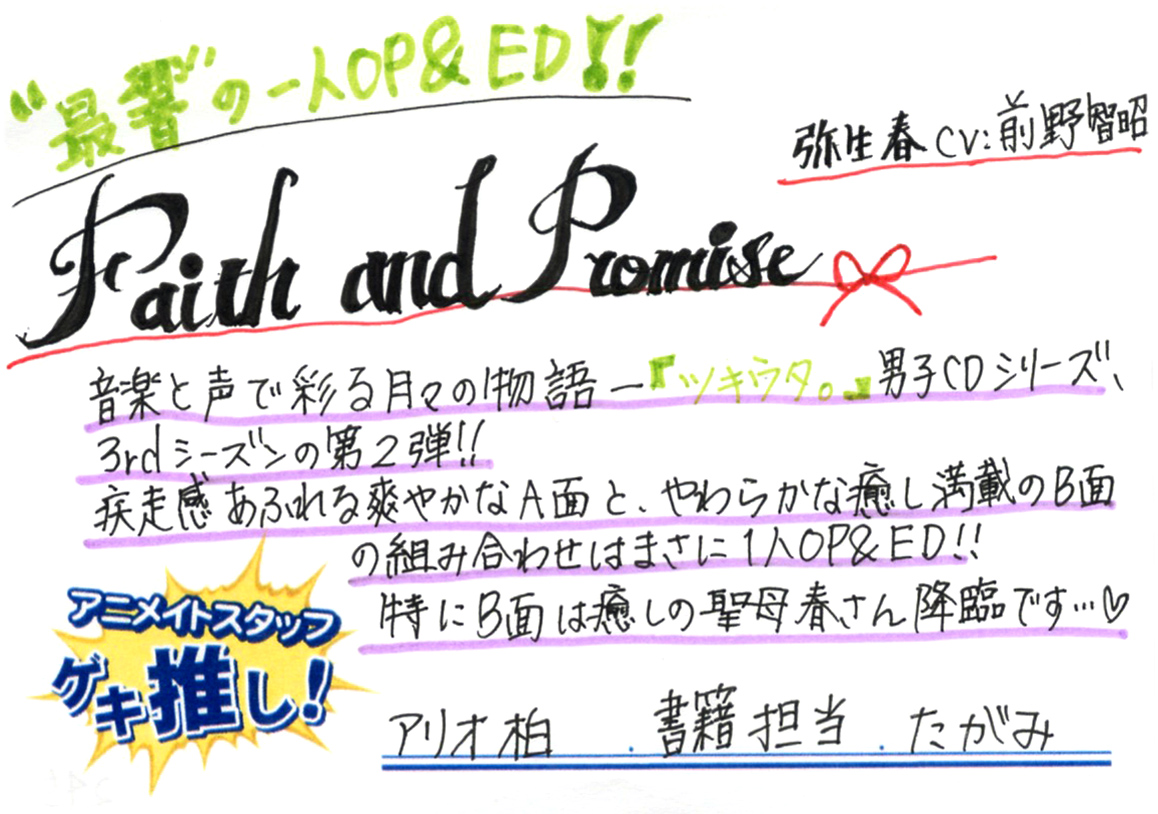 “最響”の一人OP&ED!!
弥生春 CV:前野智昭
Faith and Promise
音楽と声で彩る月々の物語ー『ツキウタ。』男子CDシリーズ、
3rdシーズンの第2弾!!
疾走感あふれる爽やかなA面と、やわらかな癒し満載のB面
の組み合わせはまさに1人OP&ED!!
特にB面は癒しの聖母春さん降臨です…♡
アニメイトスタッフ
ゲキ推し!
アリオ柏 . 書籍担当 . たがみ